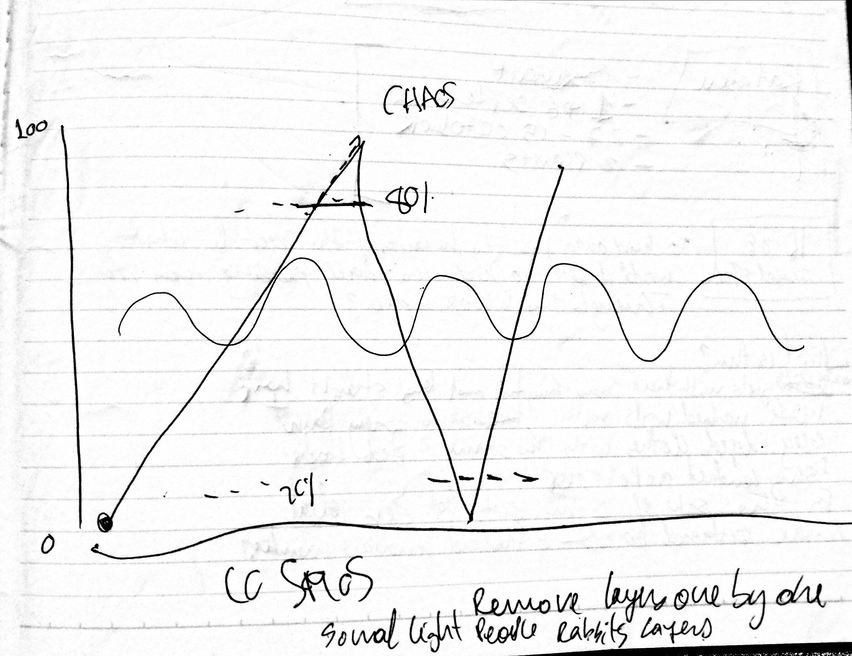 CHAOS
100
80%
20%
0
Remove layers one by one
Sound light People Rabbits Layers